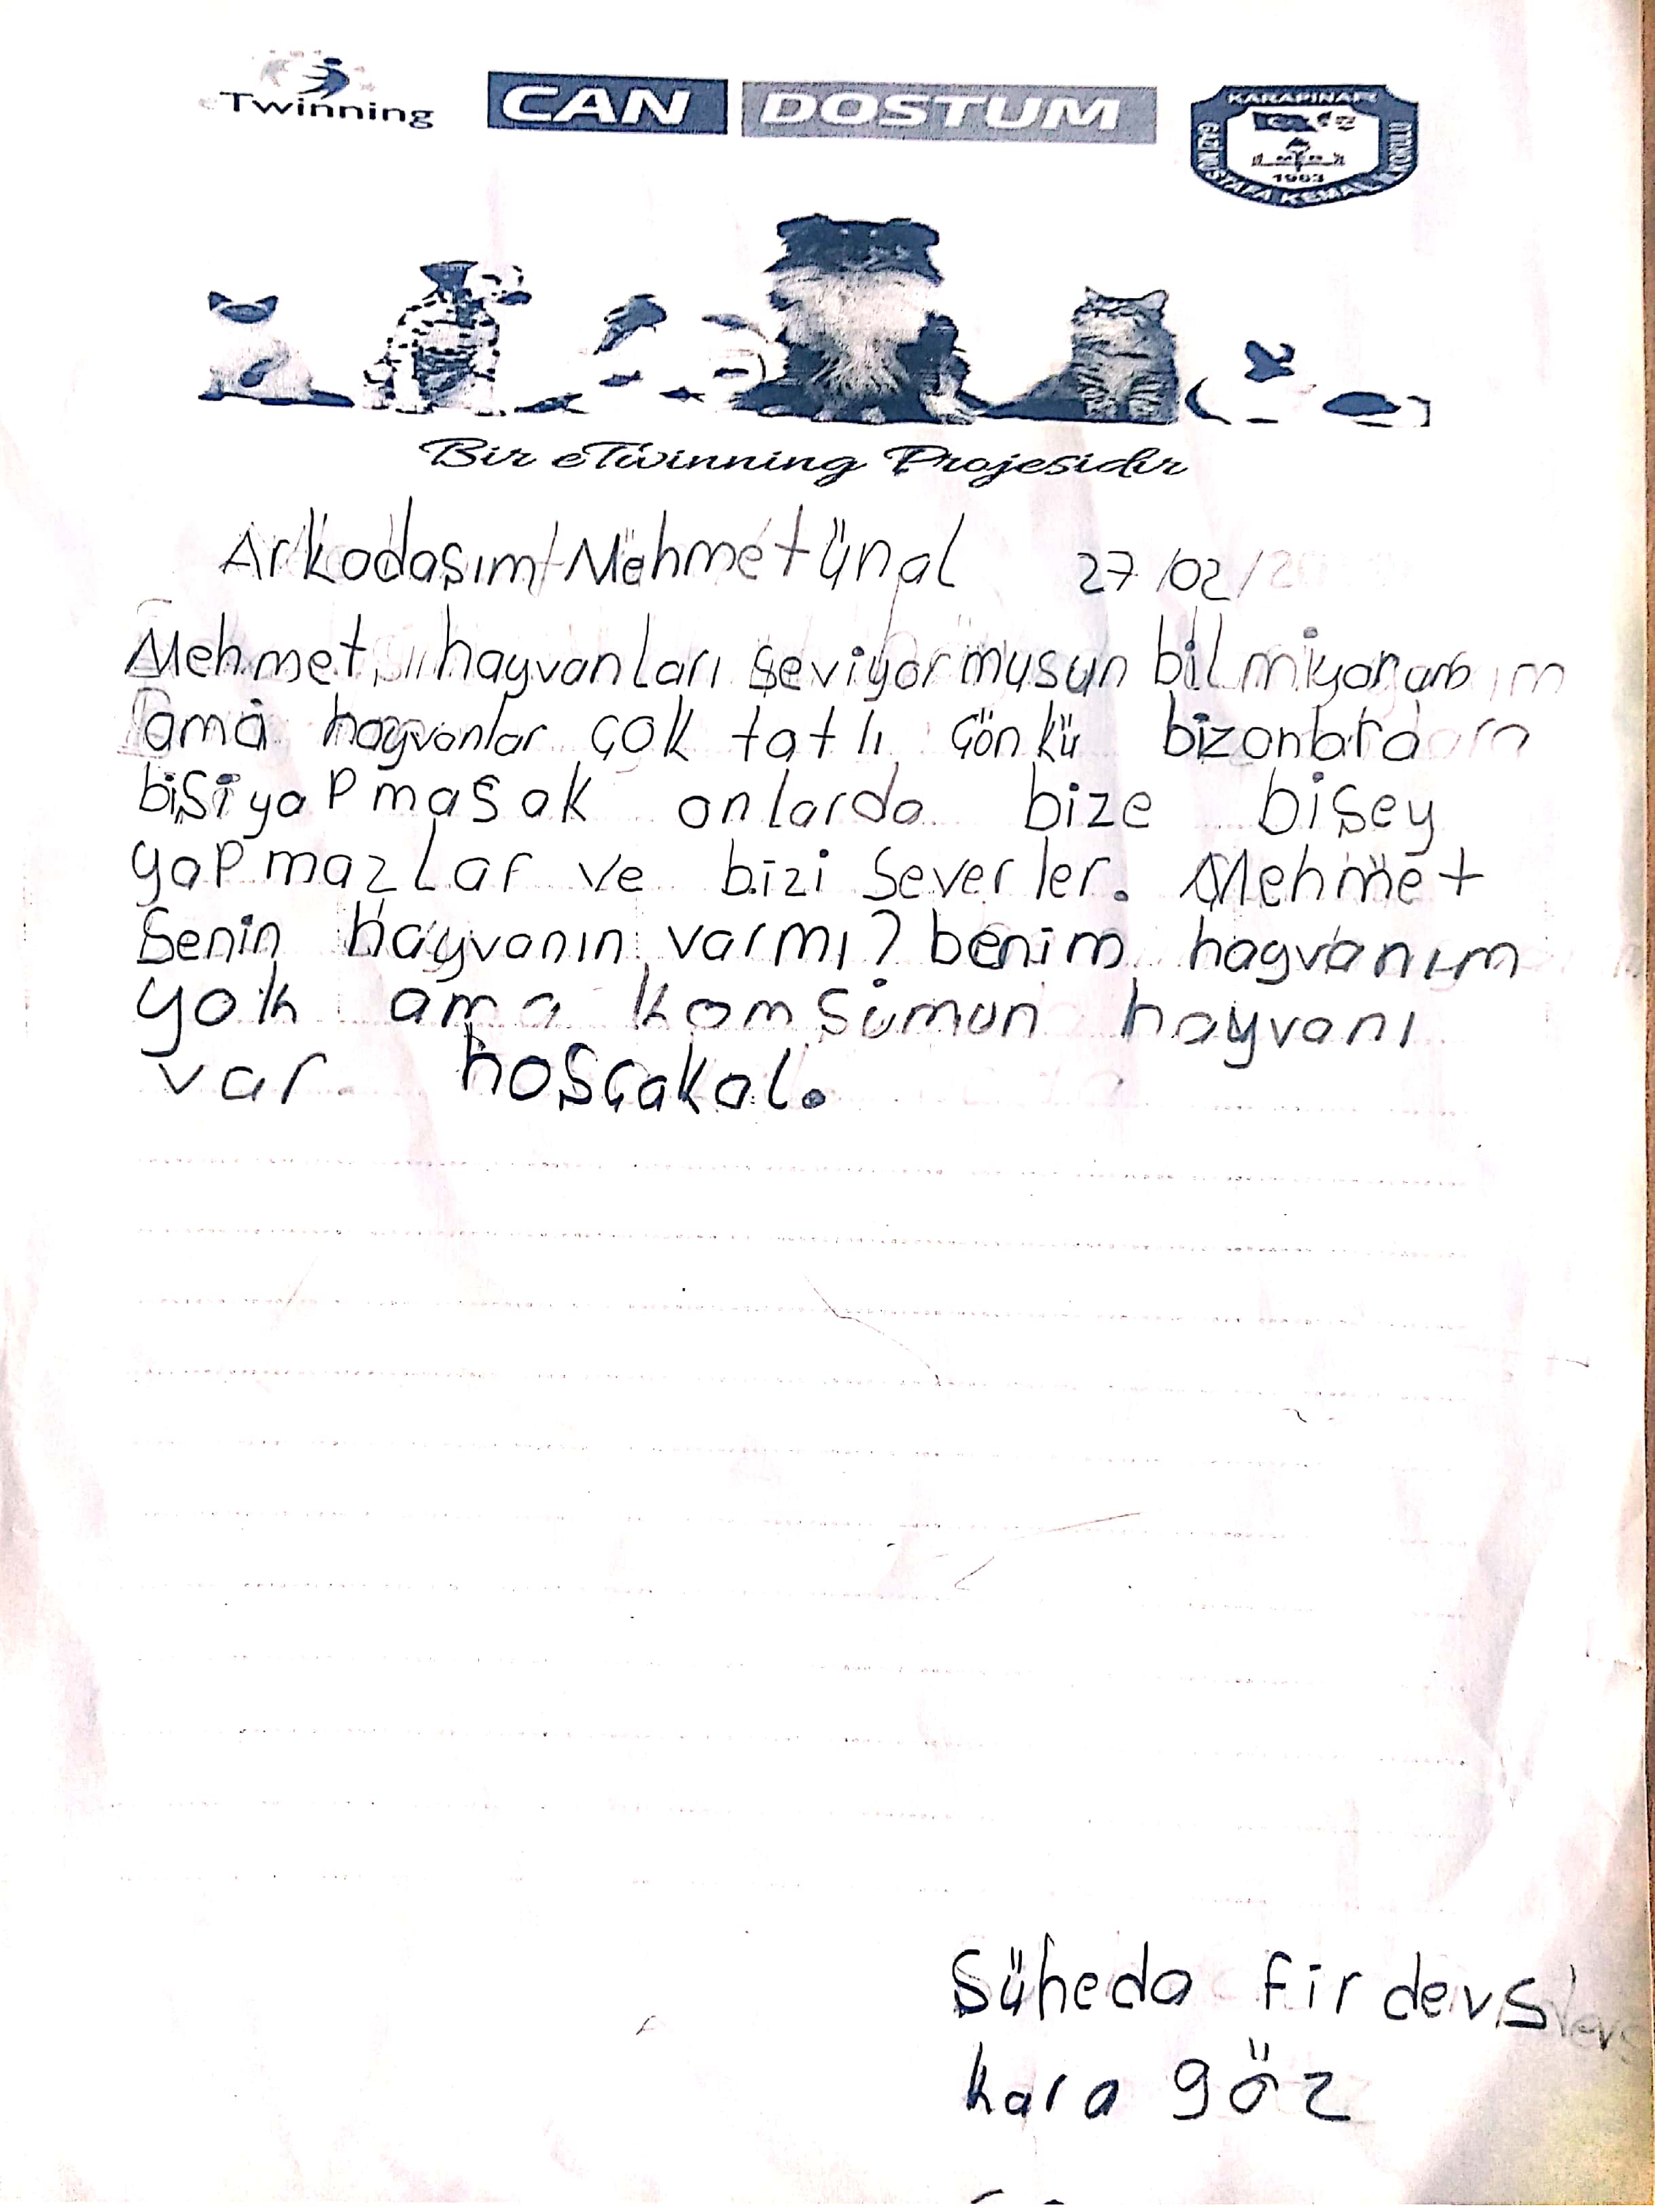 eTwinning
CAN DOSTUM
KARAPINAR
GAZİ MUSTAFA KEMAL İLKOKULU
1963
Bir eTwinning Projesidir
Arkadaşım Mehmet ünal 27/02/
Mehmet, hayvanları seviyormusun bilmiyorum
ama hayvanlar çok tatlı çönkü biz onlara
bişi yapmasak onlarda bize bişey
yapmazlar ve bizi severler. Mehmet
Senin hayvanın varmı? benim hayvanım
yok ama komşumun hayvanı
var hoşçakal.
Şüheda firdevs
kara göz